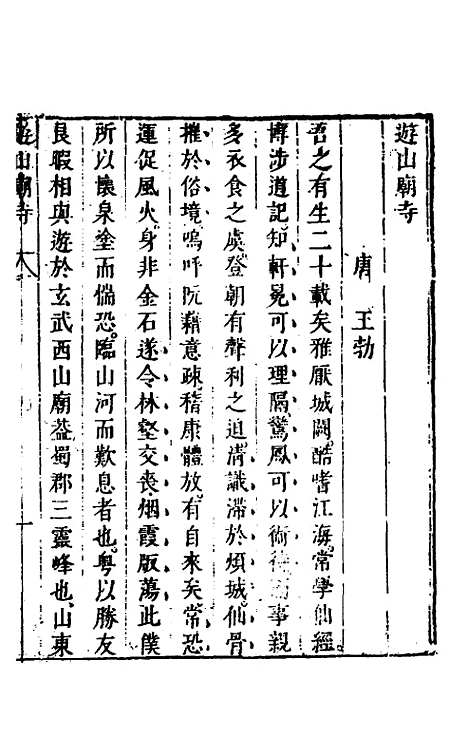 遊山廟寺
唐　王勃
吾之有生二十載矣雅厭城闕酷嗜江海常學仙經
博涉道記知軒冕可以理隔鸞鳳可以術待而事親
多衣食之虞登朝有聲利之迫淸識滯於煩城仙骨
摧於俗境嗚呼阮籍意疎嵇康體放有自來矣常恐
運促風火身非金石遂令林壑交喪烟霞版蕩此僕
所以懷泉塗而惴恐臨山河而歎息者也粤以勝友
良暇相與遊於玄武西山廟葢蜀郡三靈峰也山東
遊山廟寺